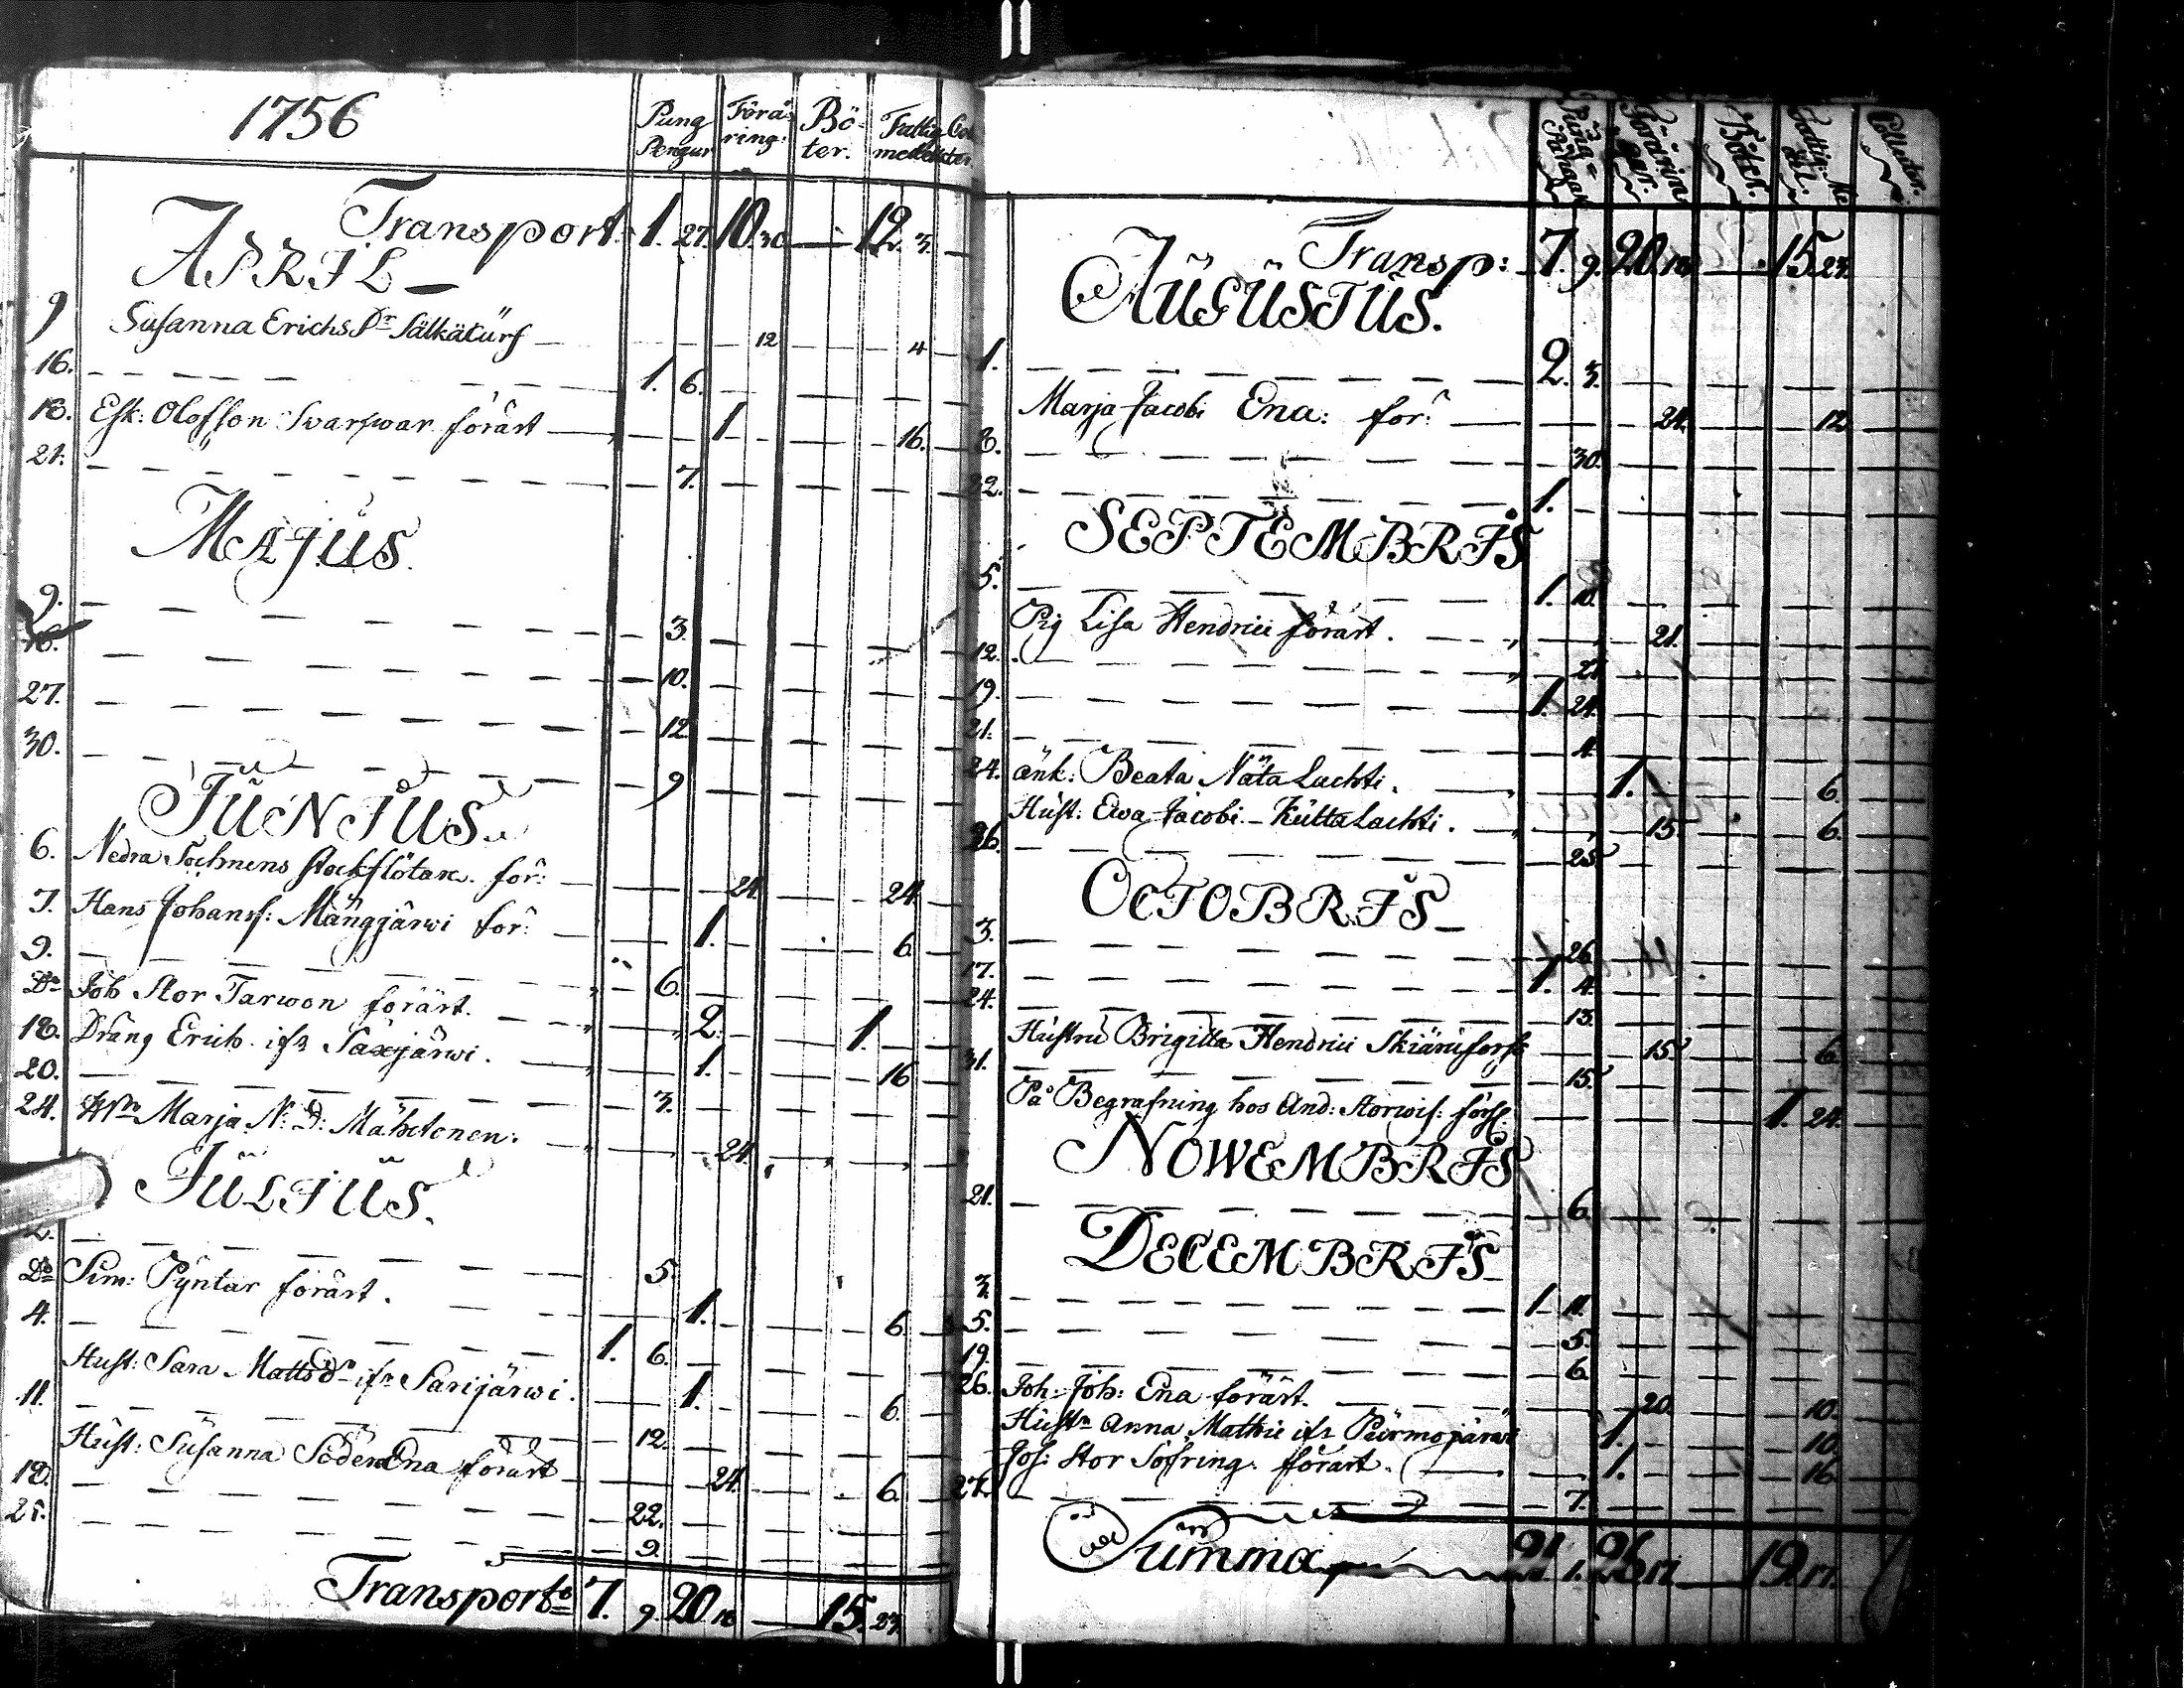 1756
Pung Pengar | Förä ring: | Bö- ter. | Fattig medel
Transport. 1. 27. 10. 30. — 12. 3. —
APRIL —
9 Susanna Erichs Dr Sälkätürf — 12 — 4 —
16. — 1. 6. —
18. Esk: Olofsson Svarfwar förärt — 1 — 16.
21. — 7. —
MAJUS.
9. — 3. —
16. — 10. —
27. — 12 —
30. — 9 —
JUNIUS.
6. Nedra Sochnens stockflötare för: — 24. — 24.
7. Hans Johansf: Mängjärwi för: — 1. — 6.
9. — 6. —
Do Joh Stor Tarwon förärt. — 2. — 1. —
18. Dräng Erich. ifr Saxjärwi. — 1. — 16
20. — 3. —
24. Marja N: D: Mähetenen. — 24.
JULIUS.
2. — 5. —
Do Sim: Pyntar förärt. — 1. — 6.
4. — 1. 6. —
Hust: Sara Matts Dr ifr Sarijärwi. — 1. — 6.
11. — 12. —
Hust: Susanna Söder Ena förärt — 24. — 6.
18. — 22. —
25. — 9. —
Transporte 7. 9. 20. 18 — 15. 27.
Pung= | Förärin gar. | Böter. | Fattig: | Collecter.
Transp: 7. 9. 20. 18 — 15. 27.
AUGUSTUS.
1. — 2. 3. —
Marja Jacobi Ena: för: — 24. — 12
8. — 30. —
22. — 1. —
SEPTEMBRIS
5. — 1. 10. —
Pig Lisa Hendrici förärt. — 21. —
12. — 21. —
19. — 1. 24. —
21. — 4. —
24. änk: Beata Näta Lachti. — 1. — 6.
Hust: Ewa Jacobi. — Kütta Lachti. — 15 — 6.
26. — 25 —
OCTOBRIS —
3. — 26. —
17. — 1. 4. —
24. — 13. —
Hustru Brigitta Hendrici Skiärüforss — 15. — 6.
31. — 15. —
På Begrafning hos And: Storwis: — 1. 24.
NOWEMBRIS
21. — 6. —
DECEMBRIS
3. — 1. 11. —
5. — 5. —
19. — 6. —
26. Joh: Joh: Ena förärt. — 20. — 10.
Hustr Anna Mathie ifr Pürmojärwi 1. — 10.
Jos: Stor Söfring. förärt. — 1. — 16.
27. — 7. —
Summa 21 1. 26 17. — 19. 17.